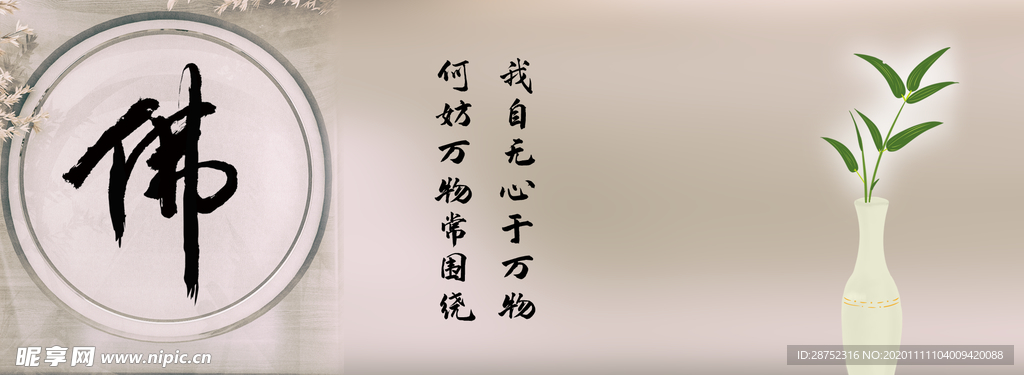 佛
我自无心于万物
何妨万物常围绕
昵享网 www.nipic.cn
ID:28752316 NO:20201111104009420088